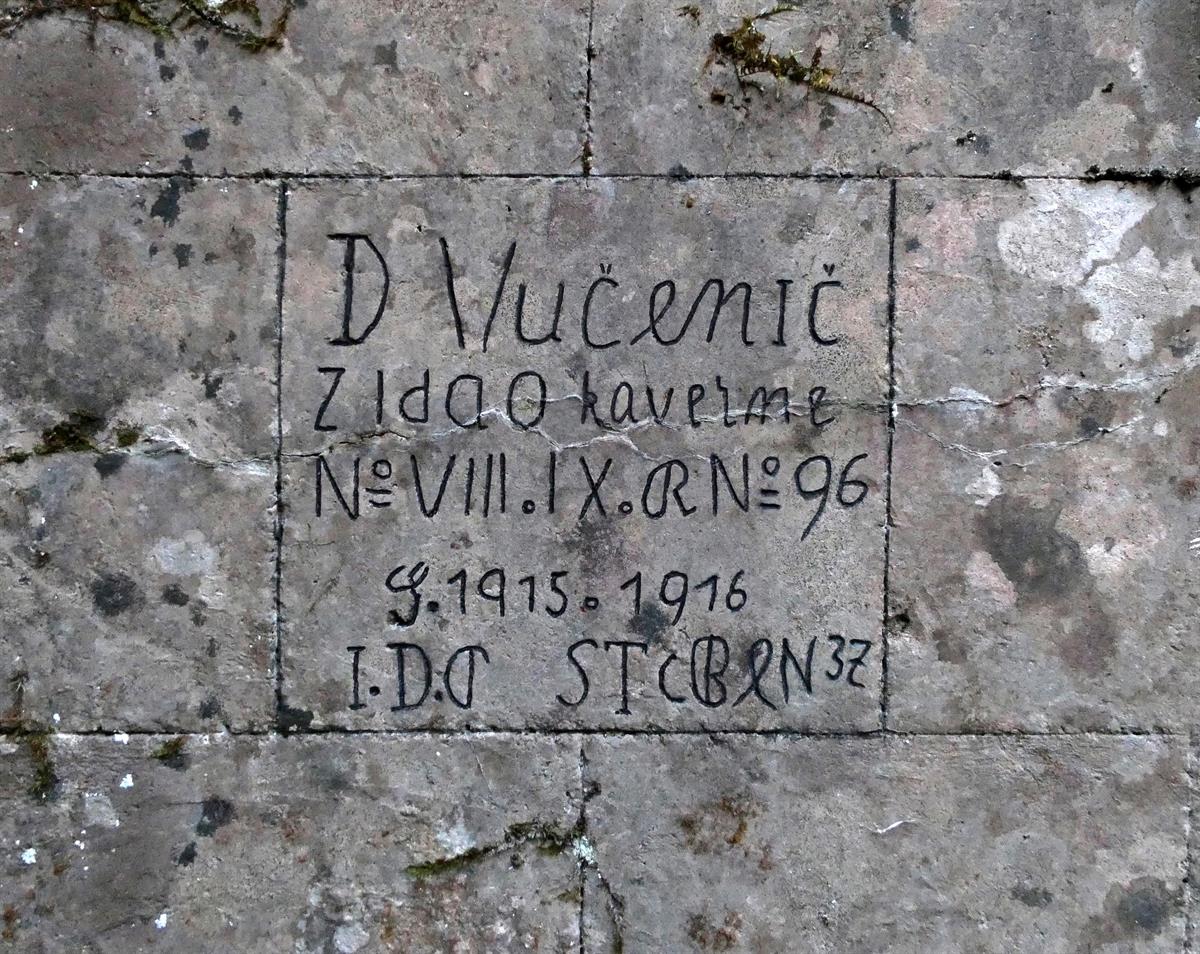 D Vučenič
Zidao kaverne
Nº VIII.IX.R Nº 96
g. 1915. 1916
I.D.O STcBlN 3Z